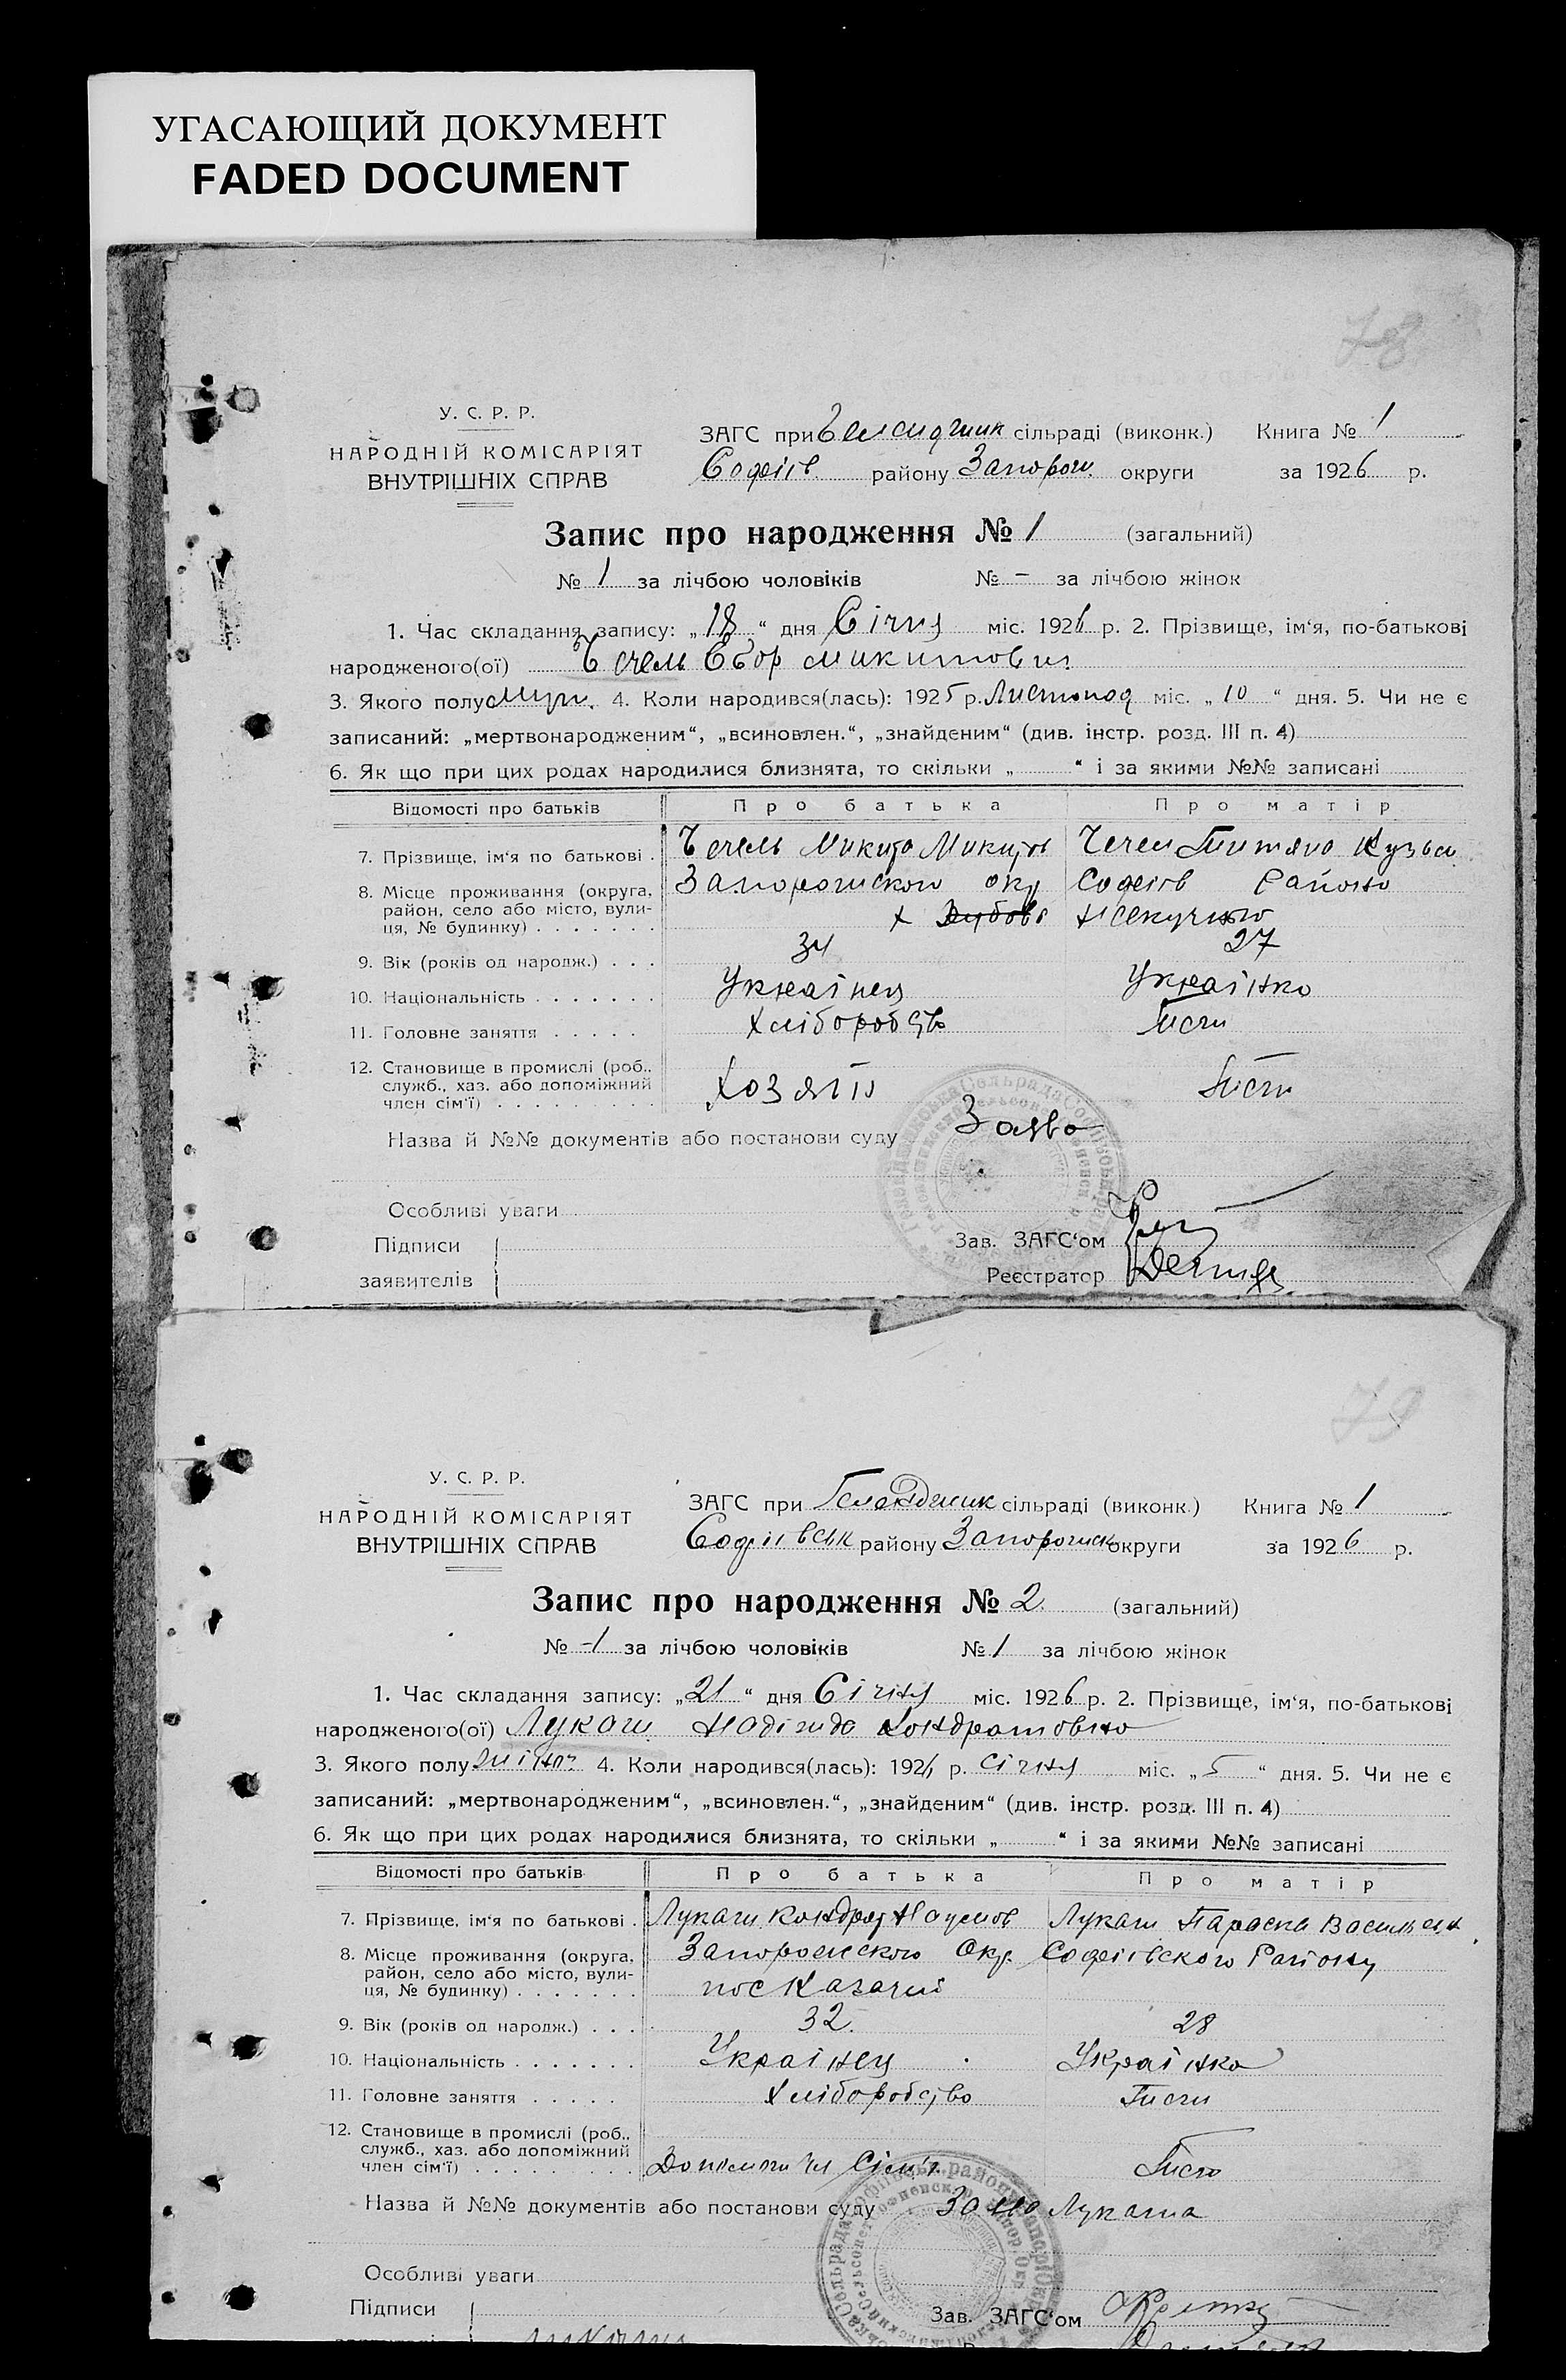 УГАСАЮЩИЙ ДОКУМЕНТ
FADED DOCUMENT
78
У. С. Р. Р.
НАРОДНІЙ КОМІСАРІЯТ
ВНУТРІШНІХ СПРАВ
ЗАГС при сільраді (виконк.) Книга № 1
Софіїв. району Запорож. округи за 1926 р.
Запис про народження № 1 (загальний)
№ 1 за лічбою чоловіків № - за лічбою жінок
1. Час складання запису: „18“ дня Січня міс. 1926 р. 2. Прізвище, ім‘я, по-батькові
народженого(ої) Чечель Єгор Микитович
3. Якого полу муж. 4. Коли народився(лась): 1925 р. Листопад міс. „10“ дня. 5. Чи не є
записаний: „мертвонародженим“, „всиновлен.“, „знайденим“ (див. інстр. розд. III п. 4)
6. Як що при цих родах народилися близнята, то скільки „ “ і за якими №№ записані
Відомості про батьків Про батька Про матір
7. Прізвище, ім‘я по батькові . Чечель Микита Микитов Чечель Татяна Кузьм
8. Місце проживання (округа, Запорожского окр Софіїв Району
район, село або місто, вули-
ця, № будинку) . . . . . . . х
9. Вік (років од народж.) . . . 34 27
10. Національність . . . . . . . Українец Українка
11. Головне заняття . . . . . Хліборобство
12. Становище в промислі (роб.,
служб., хаз. або допоміжний Хозяїн
член сім‘ї) . . . . . . . . .
Назва й №№ документів або постанови суду Заява
Особливі уваги
Підписи
заявителів
Зав. ЗАГС‘ом
Реєстратор
79
У. С. Р. Р.
НАРОДНІЙ КОМІСАРІЯТ
ВНУТРІШНІХ СПРАВ
ЗАГС при сільраді (виконк.) Книга № 1
Софіївськ району Запорожск округи за 1926 р.
Запис про народження № 2 (загальний)
№ -1 за лічбою чоловіків № 1 за лічбою жінок
1. Час складання запису: „21“ дня Січня міс. 1926 р. 2. Прізвище, ім‘я, по-батькові
народженого(ої) Лукаш Надіжда Кондратовна
3. Якого полу жіноч 4. Коли народився(лась): 192 р. січня міс. „5“ дня. 5. Чи не є
записаний: „мертвонародженим“, „всиновлен.“, „знайденим“ (див. інстр. розд. III п. 4)
6. Як що при цих родах народилися близнята, то скільки „ “ і за якими №№ записані
Відомості про батьків Про батька Про матір
7. Прізвище, ім‘я по батькові . Лукаш Кондрат Наумов Лукаш Параска Васильевн
8. Місце проживання (округа, Запорожского Окр. Софіївского Району
район, село або місто, вули-
ця, № будинку) . . . . . . . пос Казачий
9. Вік (років од народж.) . . . 32. 28
10. Національність . . . . . . . Українец Українка
11. Головне заняття . . . . . Хліборобство
12. Становище в промислі (роб.,
служб., хаз. або допоміжний
член сім‘ї) . . . . . . . . .
Назва й №№ документів або постанови суду Лукаша
Особливі уваги
Підписи
Зав. ЗАГС‘ом